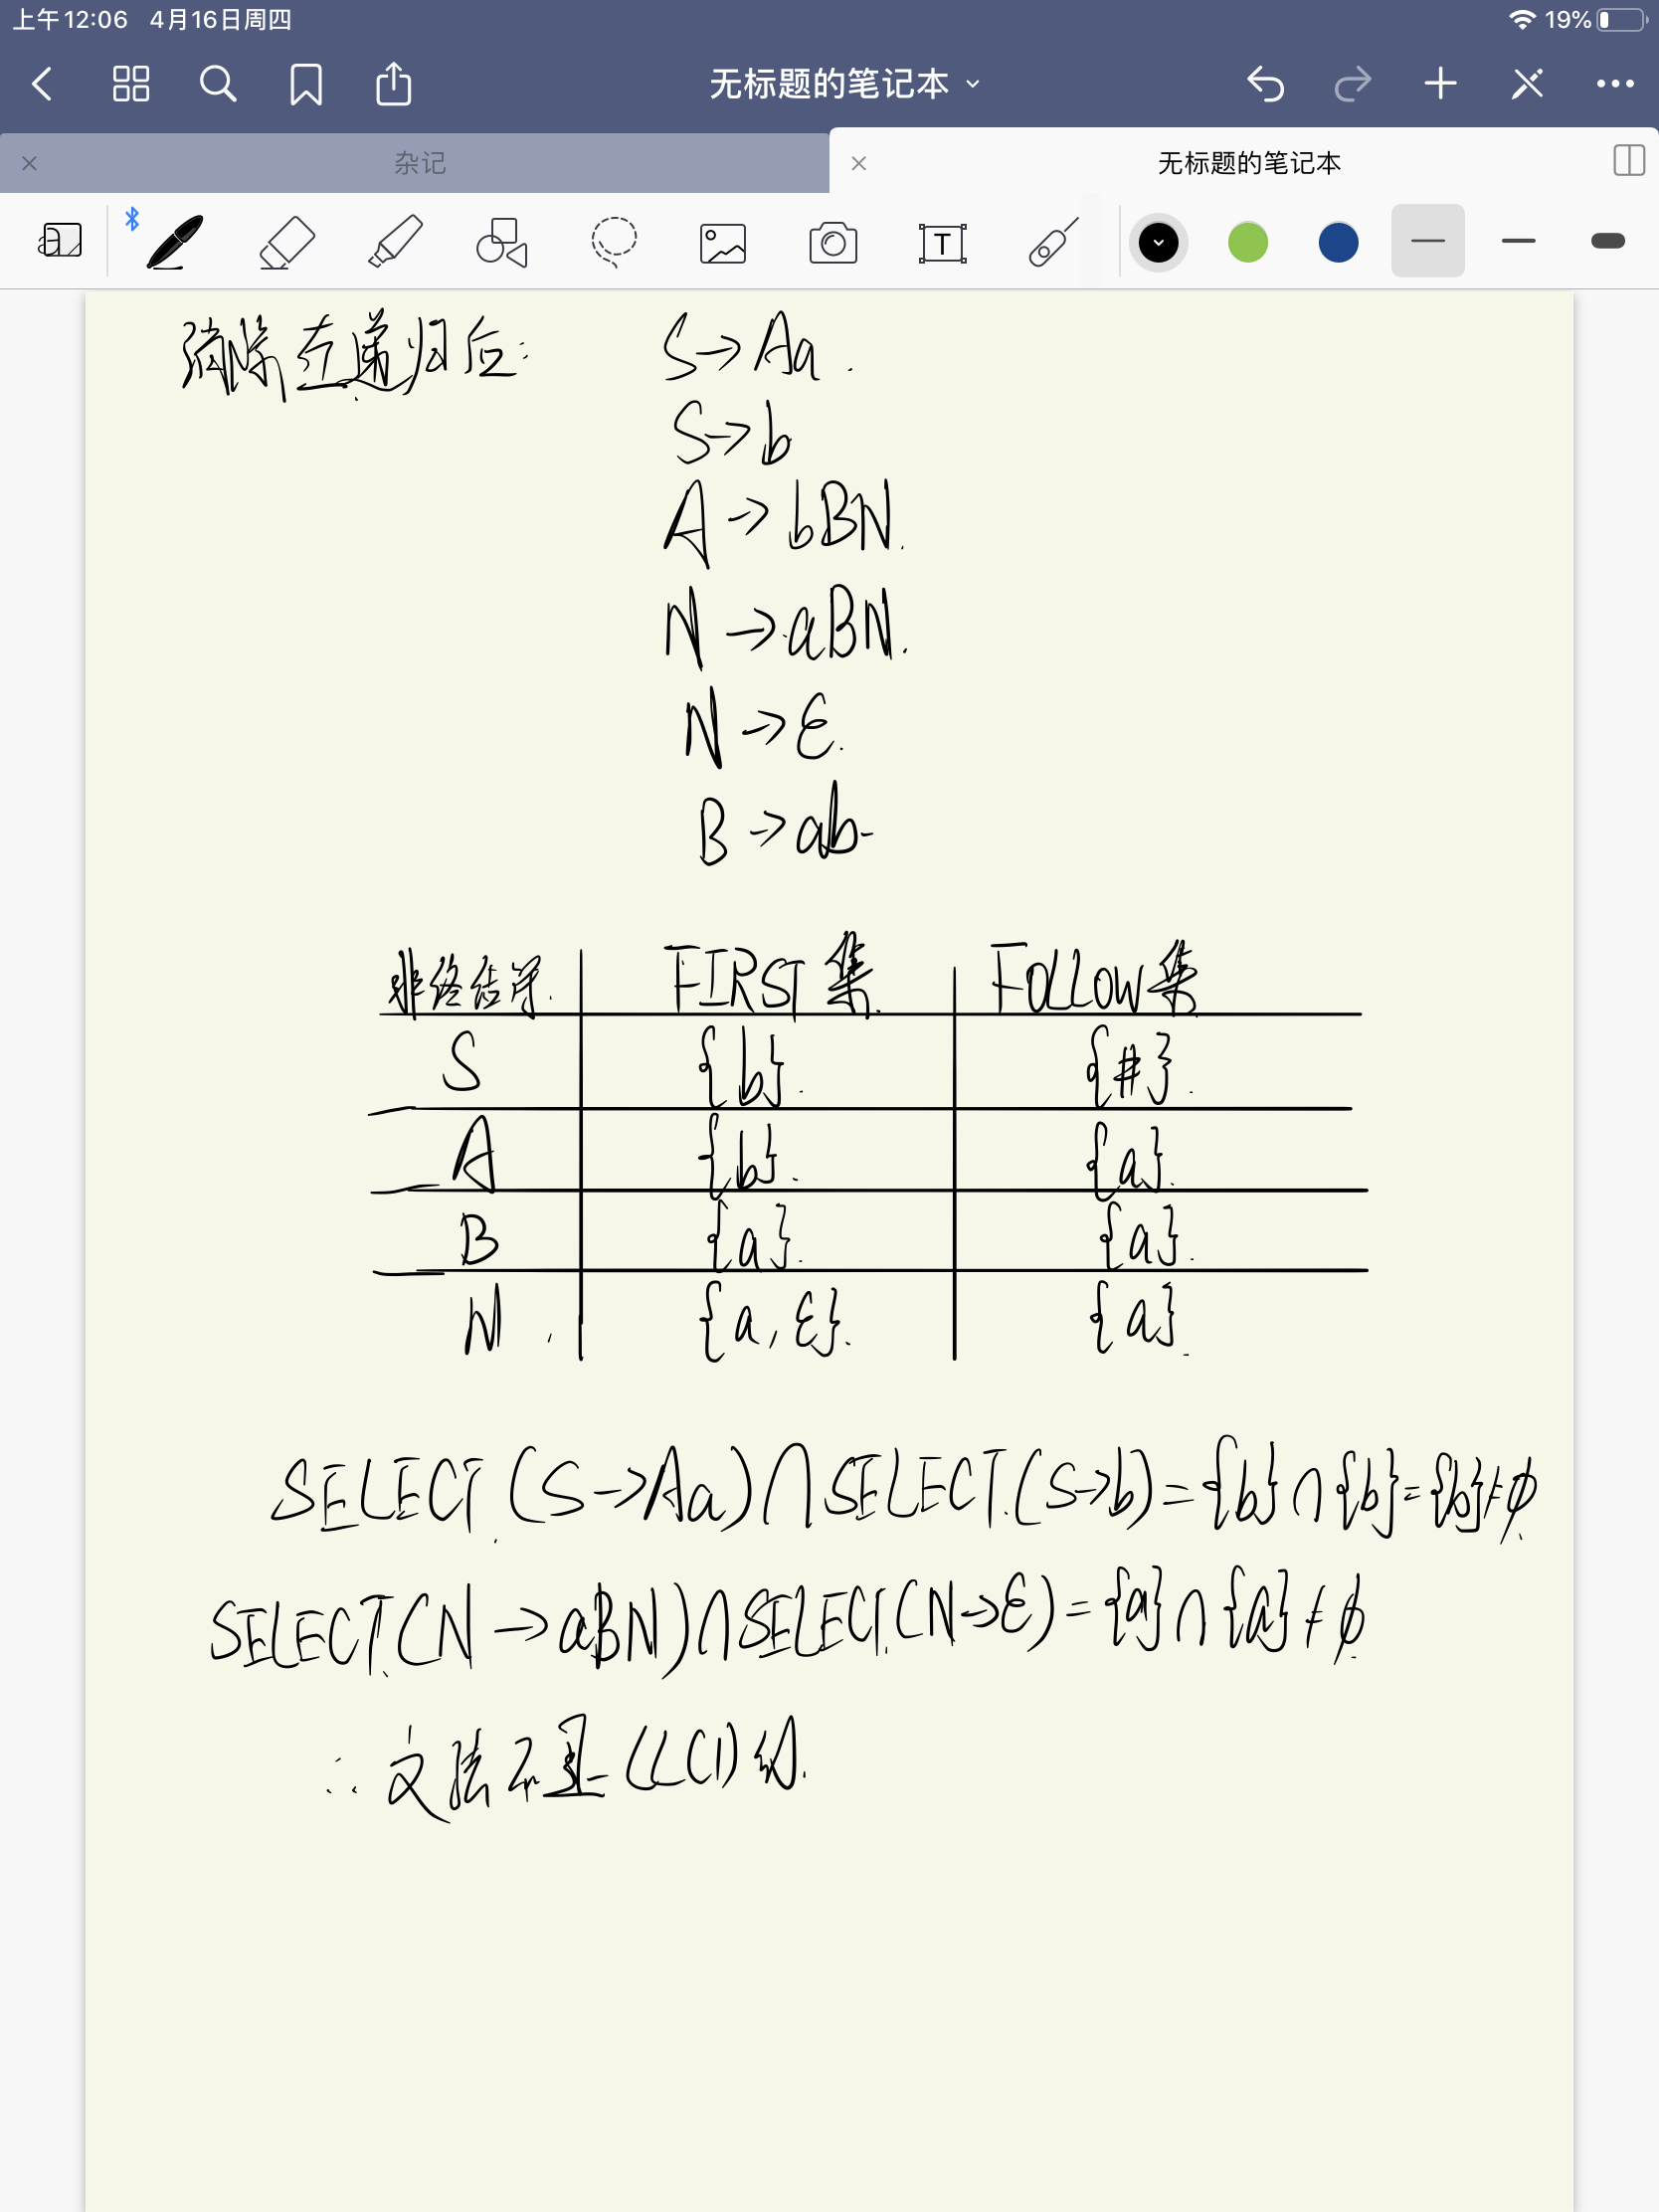 上午12:06 4月16日周四 19%
无标题的笔记本
杂记 无标题的笔记本
消除左递归后: S→Aa.
S→b
A→bBN.
N→aBN.
N→ε.
B→ab.
非终结符. FIRST集. FOLLOW集
S {b}. {#}.
A {b}. {a}.
B {a}. {a}.
N. {a,ε}. {a}.
SELECT.(S→Aa)∩SELECT.(S→b)={b}∩{b}={b}≠φ.
SELECT.(N→aBN)∩SELECT.(N→ε)={a}∩{a}≠φ.
∴文法不是LL(1)的.